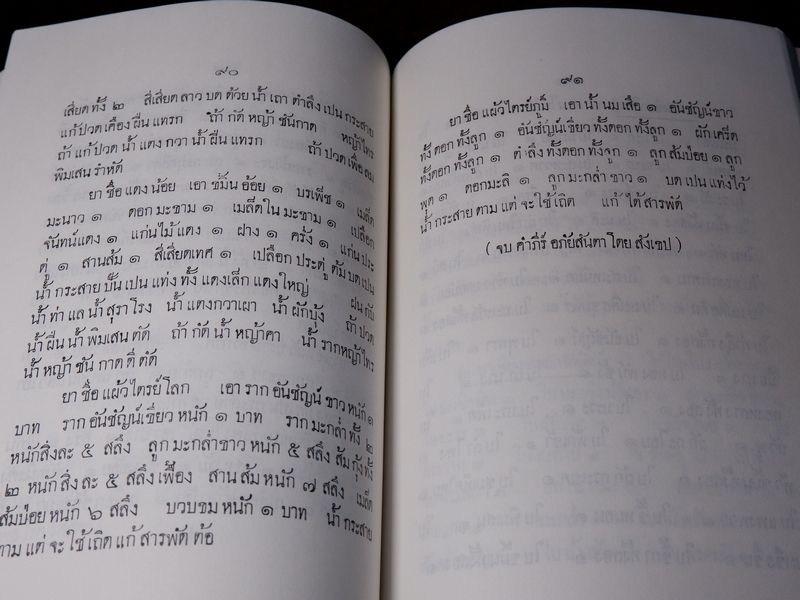 ๙๐
เสี่ยดทั้ง ๒ สี่เสี่ยดลาว บด ด้วย น้ำ เถา ตำลึง เปน กระสาย
แก้ ปวด เคือง ผืน แทรก ถ้า กัด หญ้า ชันกาด หญ้าไทร
ถ้า แก้ ปวด น้ำ แดง กวา น้ำ ผืน แทรก ถ้า ปวด เพื่อ ลม
พิมเสน รำหัด
ยา ชื่อ แดง น้อย เอา ขมิ้น อ้อย ๑ บรเพ็ช ๑ เมล็ด
มะนาว ๑ ดอก มะขาม ๑ เมล็ดใน มะขาม ๑ เปลือก
จันทน์แดง ๑ แก่นไม้ แดง ๑ ฝาง ๑ ครั่ง ๑ แก่น ประ
ดู่ ๑ สานส้ม ๑ สี่เสี่ยดเทศ ๑ เปลือก ประดู่ ต้ม บด เปน
น้ำ กระสาย ปั้น เปน แท่ง ทั้ง แดงเล็ก แดงใหญ่ ฝน กับ
น้ำ ท่า แล น้ำ สุรา โรง น้ำ แตงกวาเผา น้ำ ผักบุ้ง ถ้า ปวด
น้ำ ผืน น้ำ พิมเสน ดัด ถ้า กัด น้ำ หญ้าคา น้ำ รากหญ้าไทร
น้ำ หญ้า ชัน กาด ตี่ ดัด
ยา ชื่อ แผ้วไตรย์โลก เอา ราก อันชัญน์ ขาว หนัก ๑
บาท ราก อันชัญน์เขี่ยว หนัก ๑ บาท ราก มะกล่ำ ทั้ง ๒
หนักสิ่งละ ๕ สลึง ลูก มะกล่ำขาว หนัก ๕ สลึง ส้ม กุ้ง ทั้ง
๒ หนัก สิ่ง ละ ๕ สลึง เฟื้อง สาน ส้ม หนัก ๗ สลึง เมล็ด
ส้มป่อย หนัก ๖ สลึง บวบขม หนัก ๑ บาท น้ำ กระสาย
ตาม แต่ จะ ใช้ เถิด แก้ สารพัด ต้อ
๙๑
ยา ชื่อ แผ้วไตรย์ภูมิ์ เอา น้ำ นม เสือ ๑ อันชัญน์ ขาว
ทั้ง ดอก ทั้งลูก ๑ อันชัญน์เขี่ยว ทั้งดอก ทั้งลูก ๑ ผัก เคร็ด
ทั้งดอก ทั้งลูก ๑ ตำลึง ทั้งดอก ทั้งลูก ๑ ลูก ส้มป่อย ๑ ลูก
พุด ๑ ดอกมะลิ ๑ ลูก มะกล่ำ ขาว ๑ บด เปน แท่งไว้
น้ำ กระสาย ตาม แต่ จะ ใช้ เถิด แก้ ได้ สารพัด
( จบ คำภีร์ อภัยสันตา โดย สังเขป )